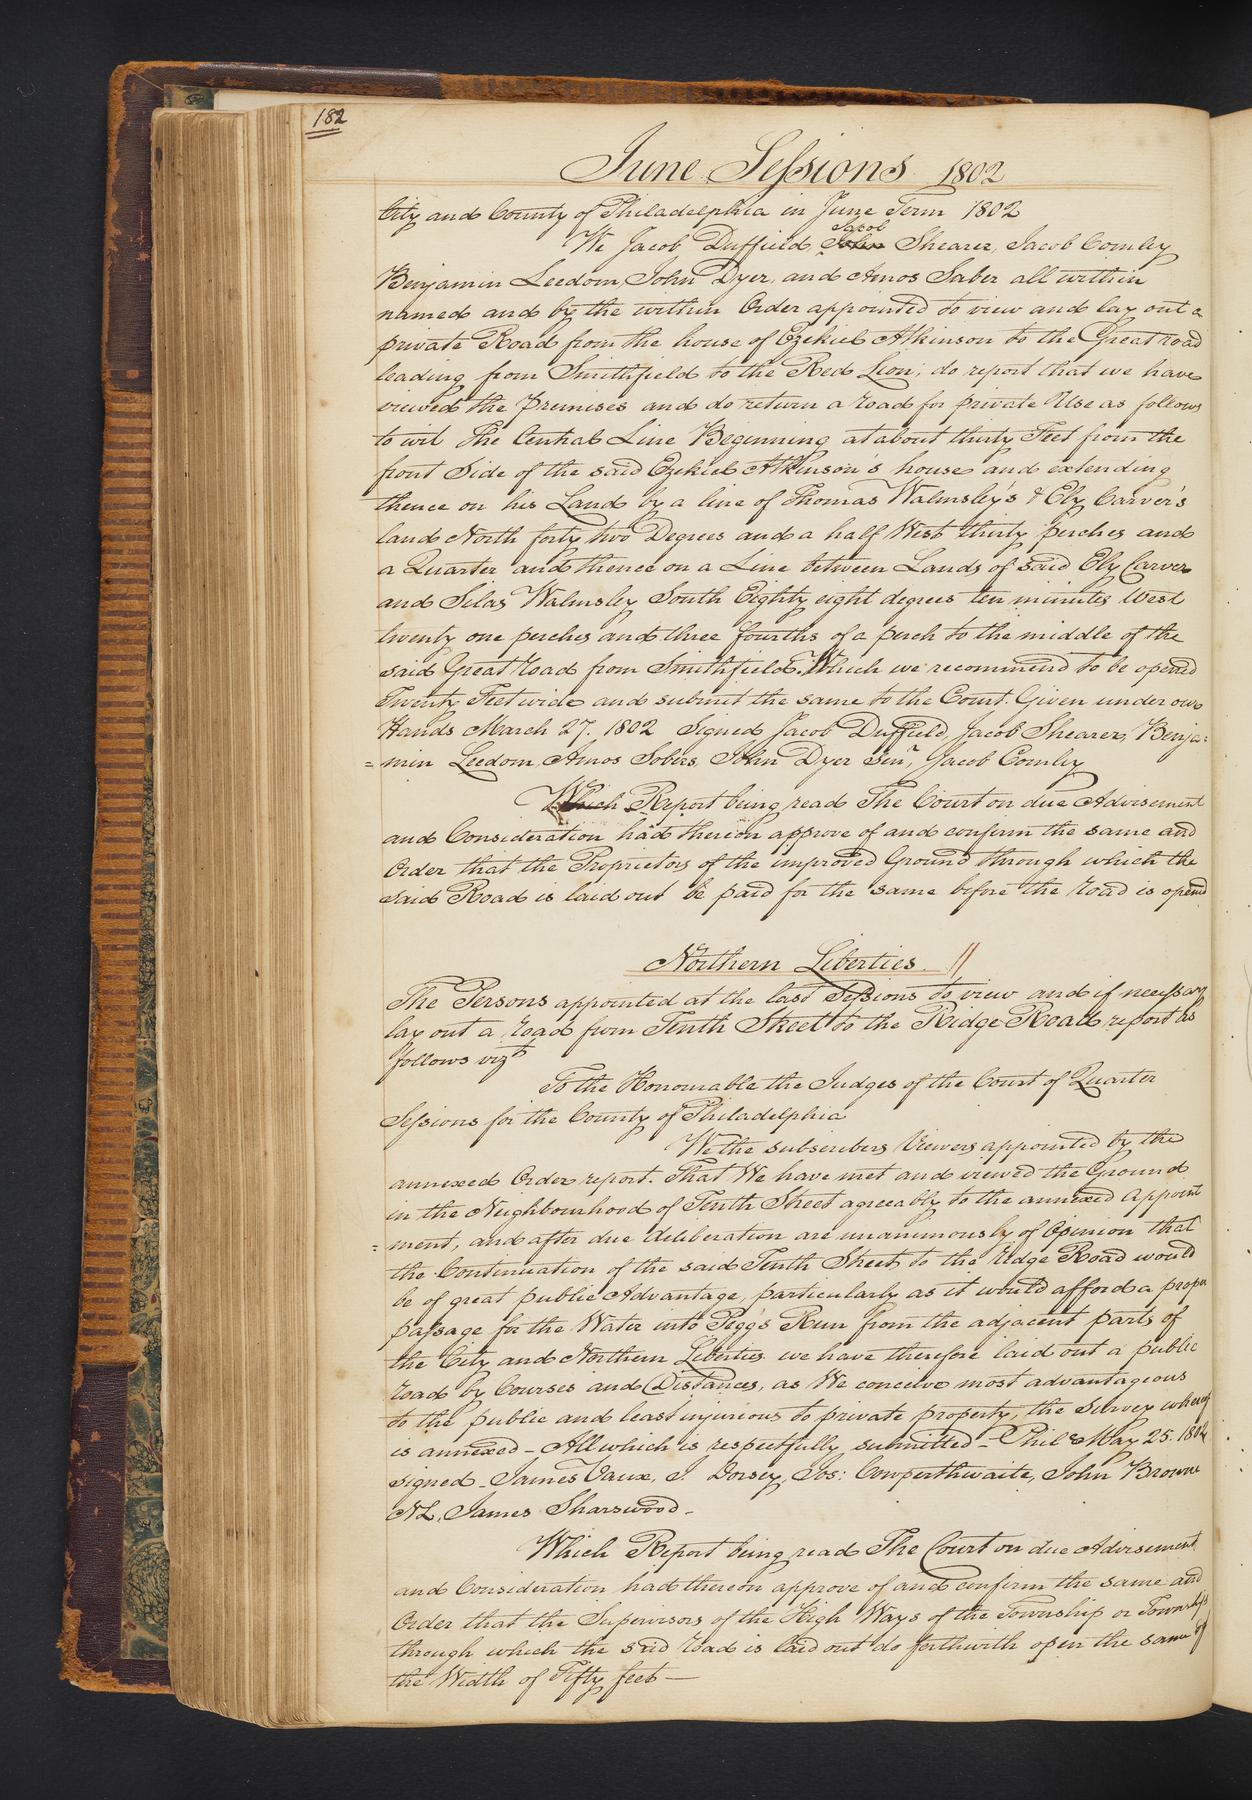 182
June Sessions 1802
City and County of Philadelphia in June Term 1802
Jacob
We Jacob Duffield John Shearer, Jacob Comley
Benjamin Leedom, John Dyer, and Amos Saber all within
named and by the within Order appointed to view and lay out a
private Road from the house of Ezekiel Atkinson to the Great road
leading from Smithfield to the Red Lion; do report that we have
viewed the Premises and do return a road for private Use as follows
to wit The Central Line Beginning at about thirty Feet from the
front Side of the said Ezekiel Atkinson's house and extending
thence on his Land by a line of Thomas Walmsley's & Ely Carver's
land North forty two Degrees and a half West thirty perches and
a Quarter and thence on a Line between Lands of said Ely Carver
and Silas Walmsley South Eighty eight degrees ten minutes West
twenty one perches and three fourths of a perch to the middle of the
said Great road from Smithfield. Which we recommend to be opened
Twenty Feet wide and submit the same to the Court. Given under our
Hands March 27. 1802 Signed Jacob Duffield, Jacob Shearer, Benja=
=min Leedom, Amos Sobers, John Dyer Senr, Jacob Comley
Which Report being read The Court on due Advisement
and Consideration had thereon approve of and confirm the same and
Order that the Proprietors of the improved Ground through which the
said Road is laid out be paid for the same before the road is opened
Northern Liberties //
The Persons appointed at the last Sessions to view and if necessary
lay out a road from Tenth Street to the Ridge Road report as
follows vizt
To the Honourable the Judges of the Court of Quarter
Sessions for the County of Philadelphia
We the subscribers Viewers appointed by the
annexed Order report. That We have met and viewed the Ground
in the Neighbourhood of Tenth Street agreeably to the annexed Appoint
=ment, and after due deliberation are unanimously of Opinion that
the Continuation of the said Tenth Street to the ridge Road would
be of great public Advantage, particularly as it would afford a proper
passage for the Water into Pegg's Run from the adjacent parts of
the City and Northern Liberties we have therefore laid out a public
road by Courses and Distances, as We conceive most advantageous
to the public and least injurious to private property, the Survey whereof
is annexed – All which is respectfully submitted – Phila May 25. 1802
signed – James Vaux, J. Dorsey, Jos: Cowperthwaite, John Browne
NL, James Sharswood –
Which Report being read The Court on due Advisement
and Consideration had thereon approve of and confirm the same and
Order that the Supervisors of the High Ways of the Township or Townships
through which the said road is laid out do forthwith open the same of
the Width of Fifty feet —